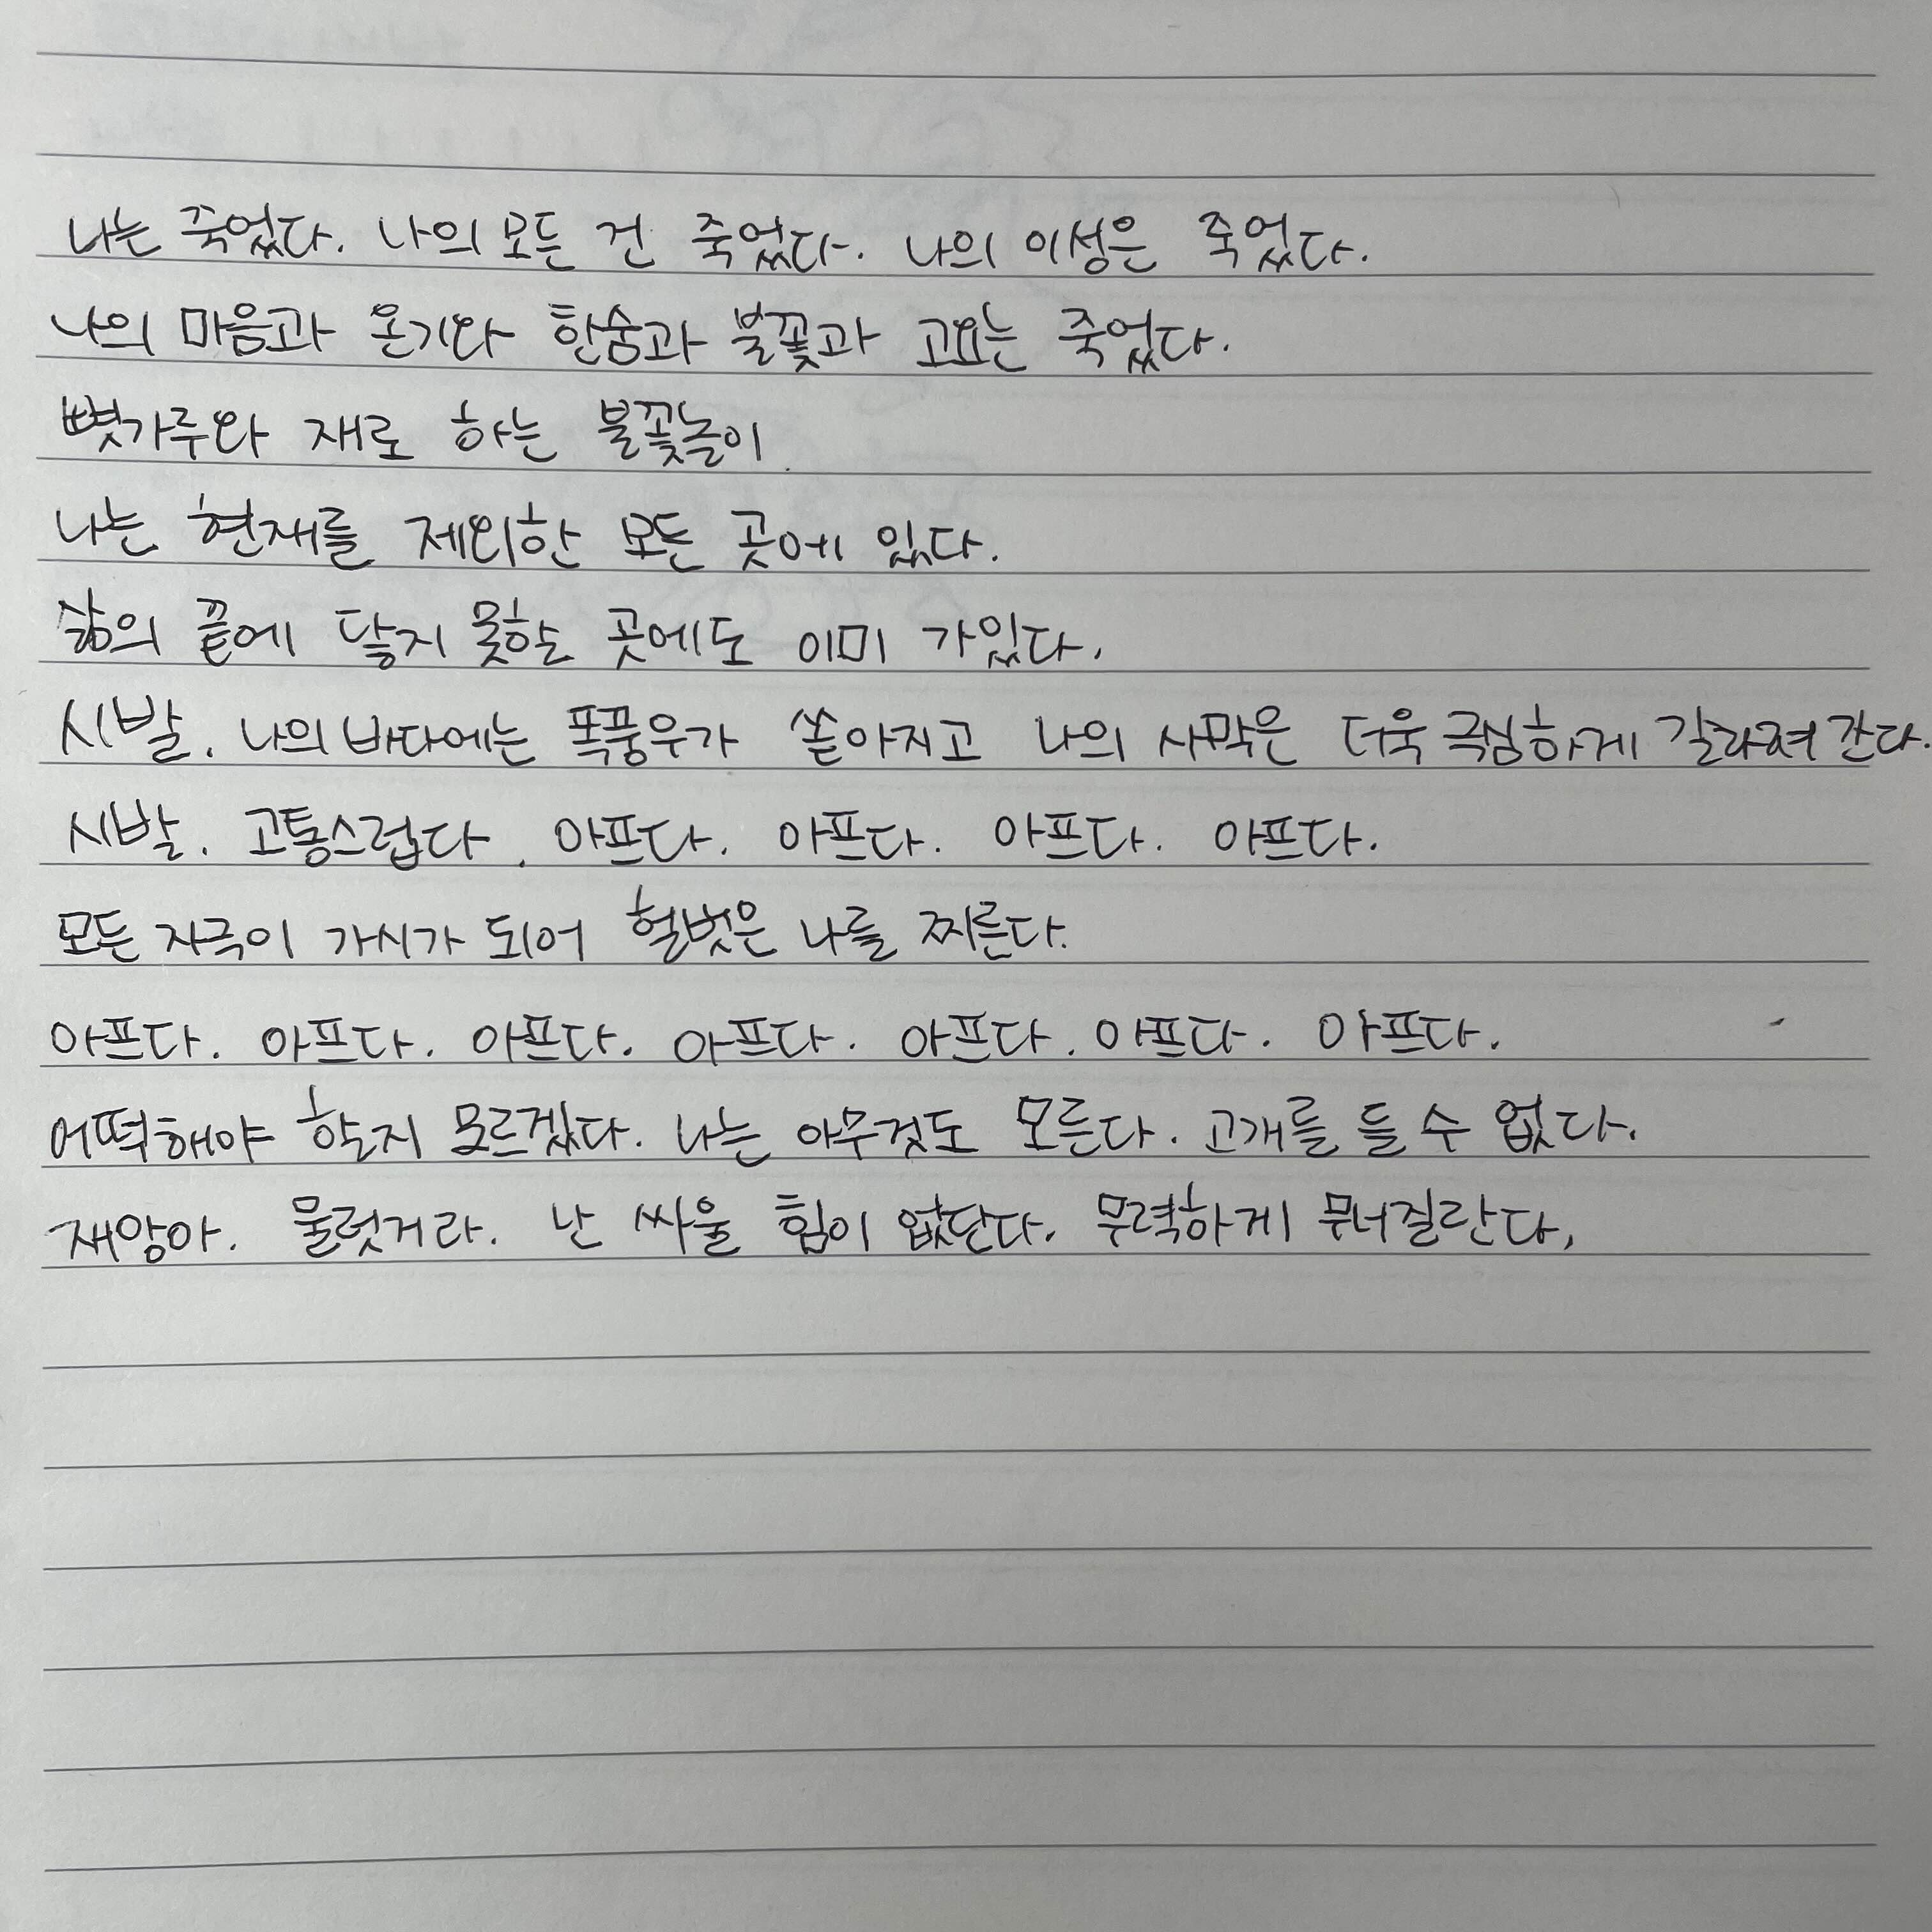 나는 죽었다. 나의 모든 건 죽었다. 나의 이성은 죽었다.
나의 마음과 온기와 한숨과 불꽃과 고요는 죽었다.
뼛가루와 재로 하는 불꽃놀이.
나는 현재를 제외한 모든 곳에 있다.
삶의 끝에 닿지 못하는 곳에도 이미 가있다.
시발. 나의 바다에는 폭풍우가 쏟아지고 나의 사막은 더욱 극심하게 갈라져 간다.
시발. 고통스럽다. 아프다. 아프다. 아프다. 아프다.
모든 자극이 가시가 되어 헐벗은 나를 찌른다.
아프다. 아프다. 아프다. 아프다. 아프다. 아프다. 아프다.
어떡해야 할지 모르겠다. 나는 아무것도 모른다. 고개를 들 수 없다.
재앙아. 물럿거라. 난 싸울 힘이 없단다. 무력하게 무너질란다.